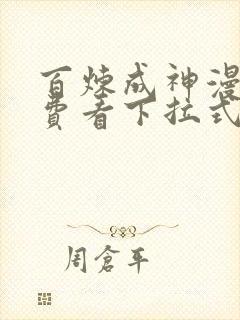 百炼成神漫
费看下拉式
周仓平